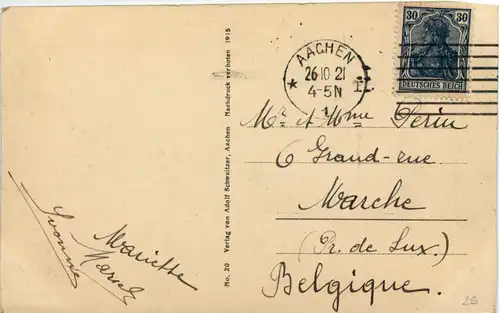 Yvonne
Mariette
Marcel
No. 20 Verlag von Adolf Schweitzer, Aachen Nachdruck verboten 1915
AACHEN
26 10 21
4-5N
* 1 II.
30 30
DEUTSCHES REICH
Mr et Mme Perin
6 Grand-rue
Marche
(Pr. de Lux.)
Belgique.
25